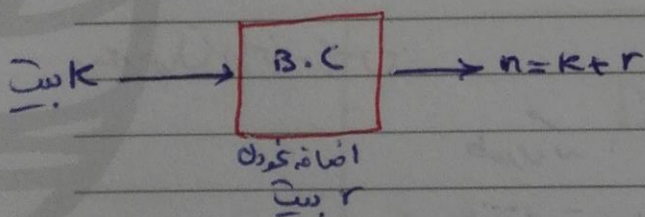 k بیت → B.C → n=k+r
اضافه کردن
r بیت